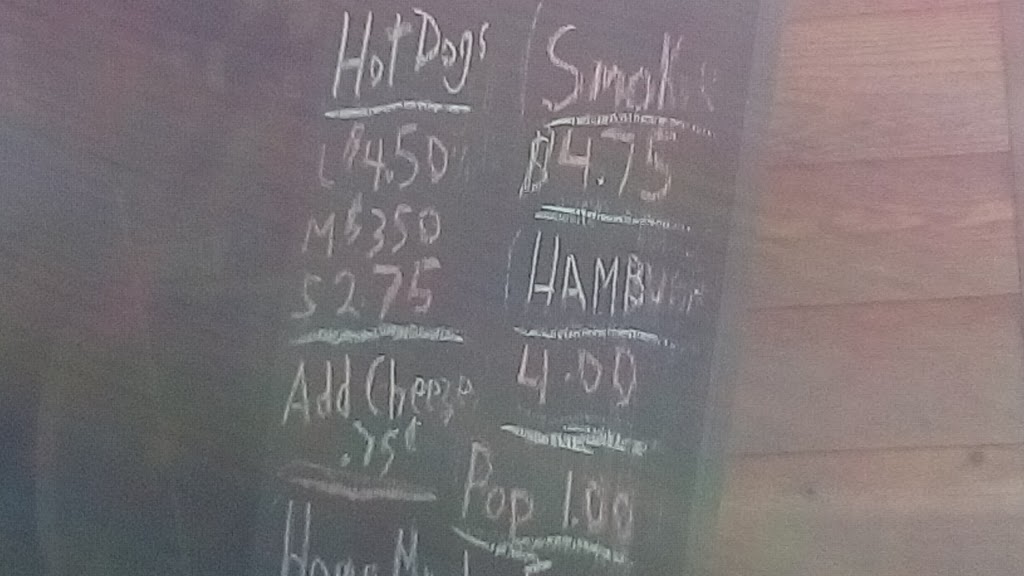 Hot Dogs
L $4.50
M $350
S 2.75
Add Cheeze
.75¢
Home
Smok
$4.75
HAMBU
4.00
Pop 1.00